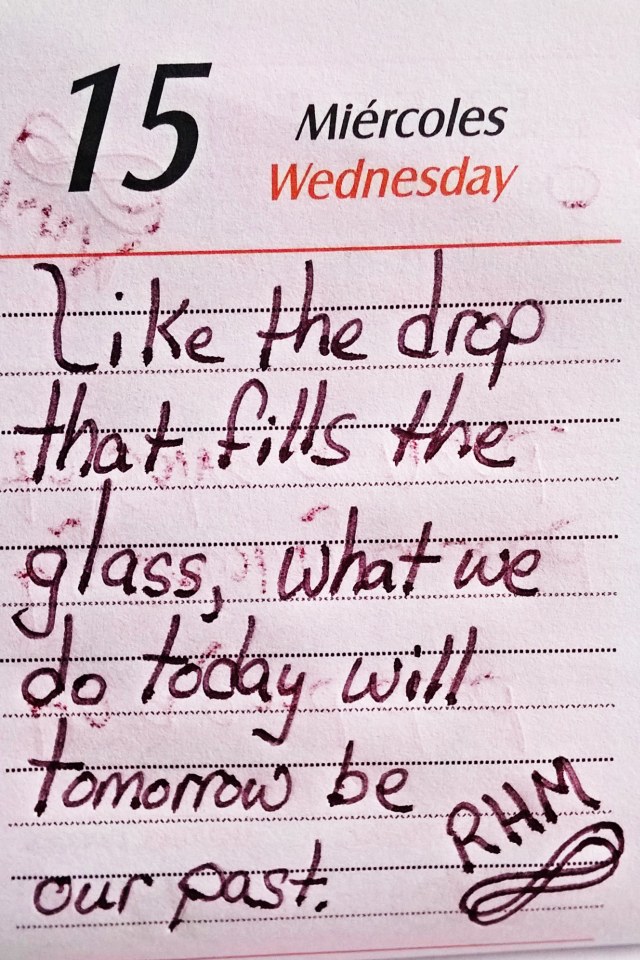 15
Miércoles
Wednesday
Like the drop
that fills the
glass, what we
do today will
tomorrow be
our past.
RHM